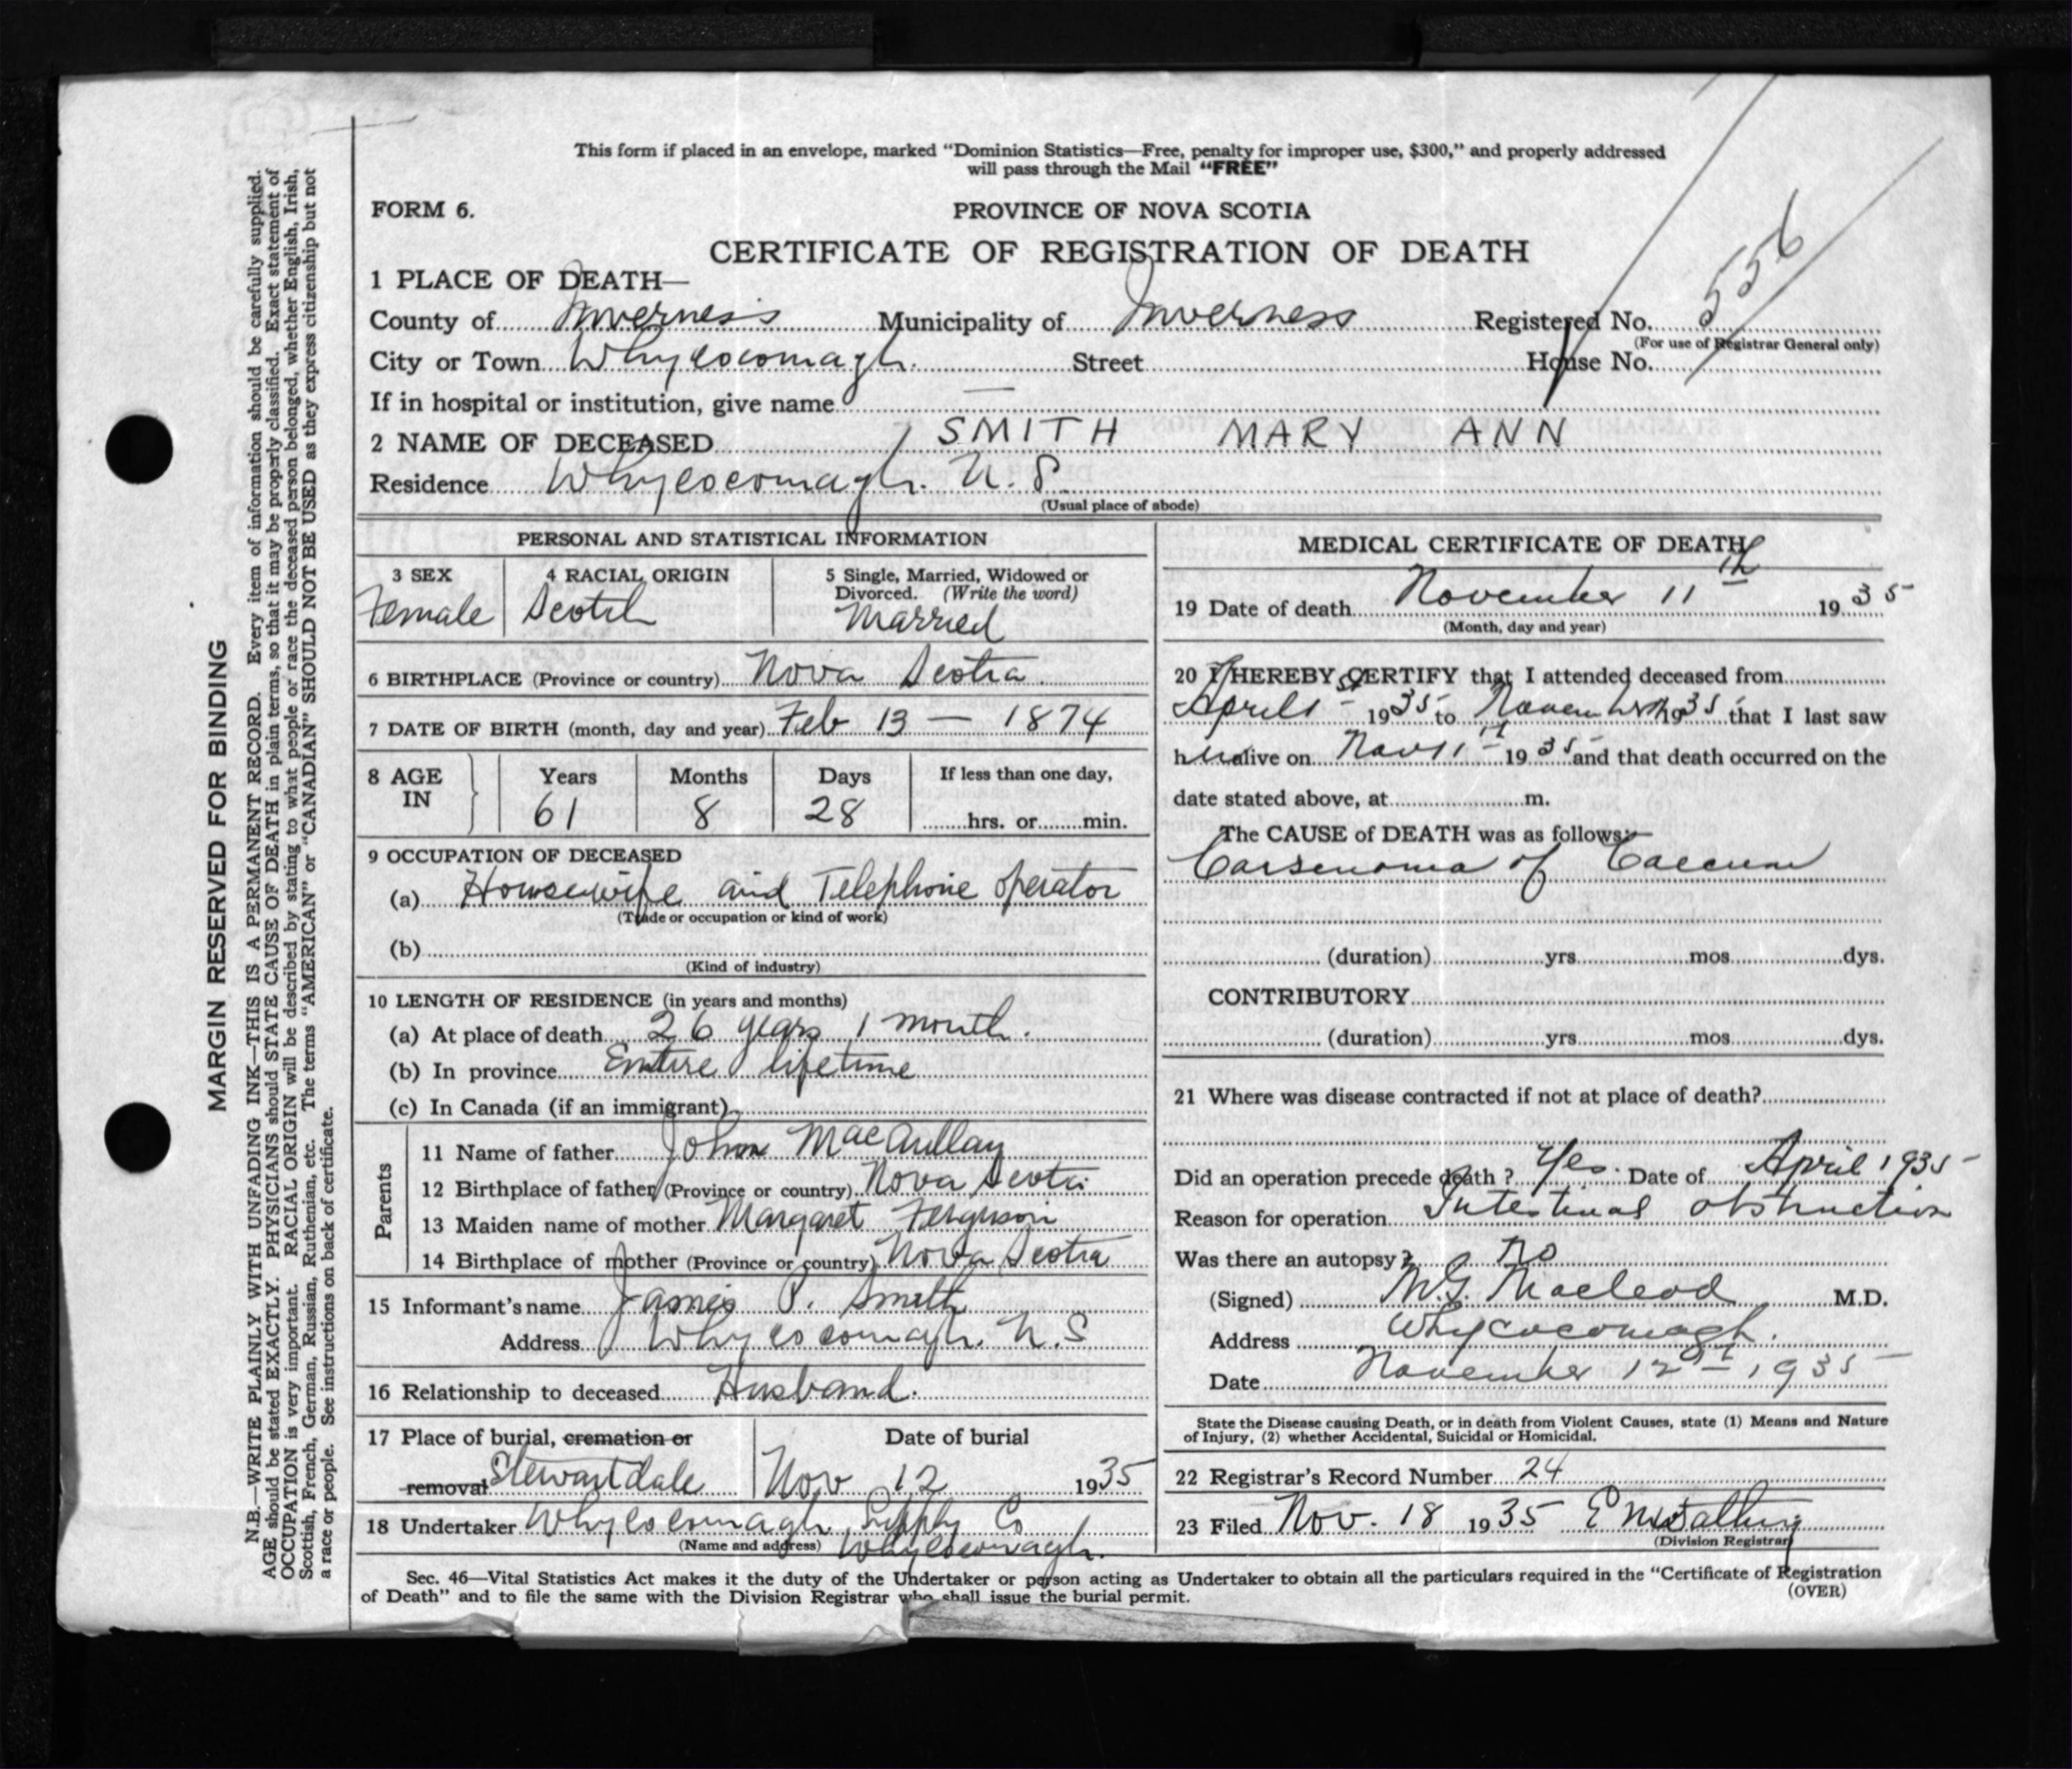 This form if placed in an envelope, marked “Dominion Statistics—Free, penalty for improper use, $300,” and properly addressed
will pass through the Mail “FREE”
FORM 6.
PROVINCE OF NOVA SCOTIA
CERTIFICATE OF REGISTRATION OF DEATH
1 PLACE OF DEATH—
County of Inverness Municipality of Inverness Registered No. 556
(For use of Registrar General only)
City or Town Whycocomagh. Street House No.
If in hospital or institution, give name —
2 NAME OF DECEASED SMITH MARY ANN
Residence Whycocomagh. N.S.
(Usual place of abode)
PERSONAL AND STATISTICAL INFORMATION
3 SEX 4 RACIAL ORIGIN 5 Single, Married, Widowed or
Divorced. (Write the word)
Female Scotch Married
6 BIRTHPLACE (Province or country) Nova Scotia.
7 DATE OF BIRTH (month, day and year) Feb 13 — 1874
8 AGE IN Years Months Days If less than one day,
61 8 28 hrs. or min.
9 OCCUPATION OF DECEASED
(a) Housewife and Telephone operator
(Trade or occupation or kind of work)
(b)
(Kind of industry)
10 LENGTH OF RESIDENCE (in years and months)
(a) At place of death 26 years 1 month.
(b) In province Entire lifetime
(c) In Canada (if an immigrant)
Parents
11 Name of father John MacAullay
12 Birthplace of father (Province or country) Nova Scotia
13 Maiden name of mother Margaret Ferguson
14 Birthplace of mother (Province or country) Nova Scotia
15 Informant's name James P. Smith
Address Whycocomagh. N.S
16 Relationship to deceased Husband.
17 Place of burial, cremation or Date of burial
removal Stewartdale Nov 12 1935
18 Undertaker Whycocomagh Supply Co
(Name and address) Whycocomagh.
MEDICAL CERTIFICATE OF DEATH
19 Date of death November 11th 1935
(Month, day and year)
20 I HEREBY CERTIFY that I attended deceased from
April 1st 1935 to November 1935 that I last saw
her alive on Nov 11th 1935 and that death occurred on the
date stated above, at m.
The CAUSE of DEATH was as follows:—
Carsenoma of Caecum
(duration) yrs. mos. dys.
CONTRIBUTORY
(duration) yrs. mos. dys.
21 Where was disease contracted if not at place of death?
Did an operation precede death? Yes. Date of April 1935
Reason for operation Intestinal obstruction
Was there an autopsy? no
(Signed) M.G. Macleod M.D.
Address Whycocomagh.
Date November 12th 1935
State the Disease causing Death, or in death from Violent Causes, state (1) Means and Nature
of Injury, (2) whether Accidental, Suicidal or Homicidal.
22 Registrar's Record Number 24
23 Filed Nov. 18 1935
(Division Registrar)
Sec. 46—Vital Statistics Act makes it the duty of the Undertaker or person acting as Undertaker to obtain all the particulars required in the “Certificate of Registration
of Death” and to file the same with the Division Registrar who shall issue the burial permit.
(OVER)
MARGIN RESERVED FOR BINDING
N.B.—WRITE PLAINLY WITH UNFADING INK—THIS IS A PERMANENT RECORD. Every item of information should be carefully supplied.
AGE should be stated EXACTLY. PHYSICIANS should STATE CAUSE OF DEATH in plain terms, so that it may be properly classified. Exact statement of
OCCUPATION is very important. RACIAL ORIGIN will be described by stating to what people or race the deceased person belonged, whether English, Irish,
Scottish, French, German, Russian, Ruthenian, etc. The terms “AMERICAN” or “CANADIAN” SHOULD NOT BE USED as they express citizenship but not
a race or people. See instructions on back of certificate.